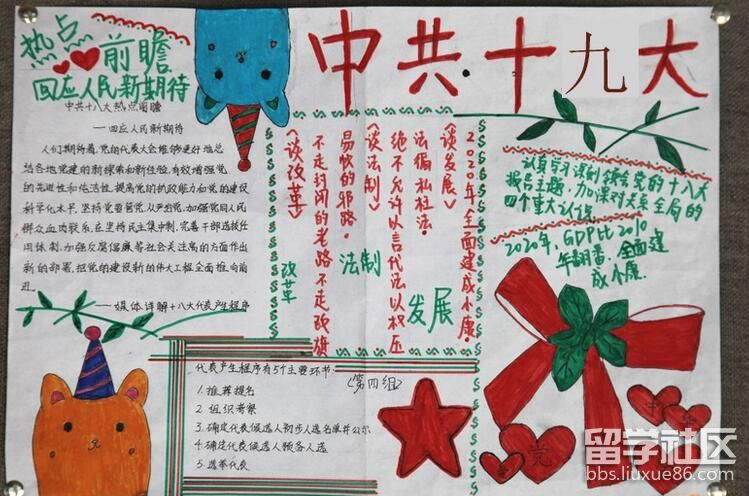 热点
前瞻
回应人民新期待
中共十九大
中共十八大热点前瞻
——回应人民新期待
人们期待着,党的代表大会能够更好地总
结各地党建的新探索和新经验,有效增强党
的先进性和纯洁性,提高党的执政能力和党的建设
科学化水平,坚持党要管党、从严治党,加强党同人民
群众血肉联系,在坚持民主集中制、完善干部选拔任
用体制、加强反腐倡廉等社会关注高的方面作出
新的部署,把党的建设新的伟大工程全面推向前
进。
——媒体详解十八大代表产生程序
《谈发展》
2020年全面建成小康。
发展
《谈法制》
绝不允许以言代法以权压
法徇私枉法。
法制
《谈改革》
不走封闭的老路不走改旗
易帜的邪路。
改革
认真学习深刻领会党的十八大
报告主题,加深对关系全局的
四个重大认识
2020年,GDP比2010
年翻番,全面建
成小康.
代表产生程序有5个主要环节:
1.推荐提名
2.组织考察
3.确定代表候选人初步人选名单并公示
4.确定代表候选人预备人选
5.选举代表
《第四组》
党
留学社区
bbs.liuxue86.com